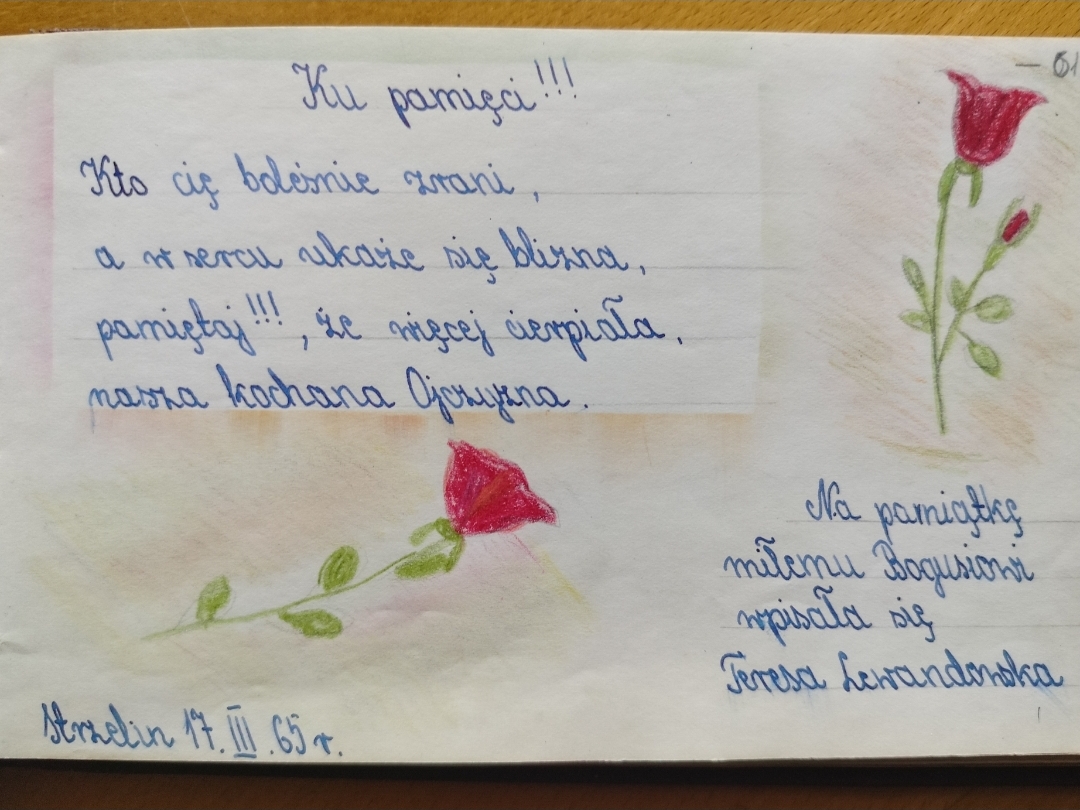 Ku pamięci!!!
Kto cię boleśnie zrani,
a w sercu ukaże się blizna,
pamiętaj!!!, że więcej cierpiała,
nasza kochana Ojczyzna.
Na pamiątkę
miłemu Bogusiowi
wpisała się
Teresa Lewandowska
Strzelin 17.III.65 r.